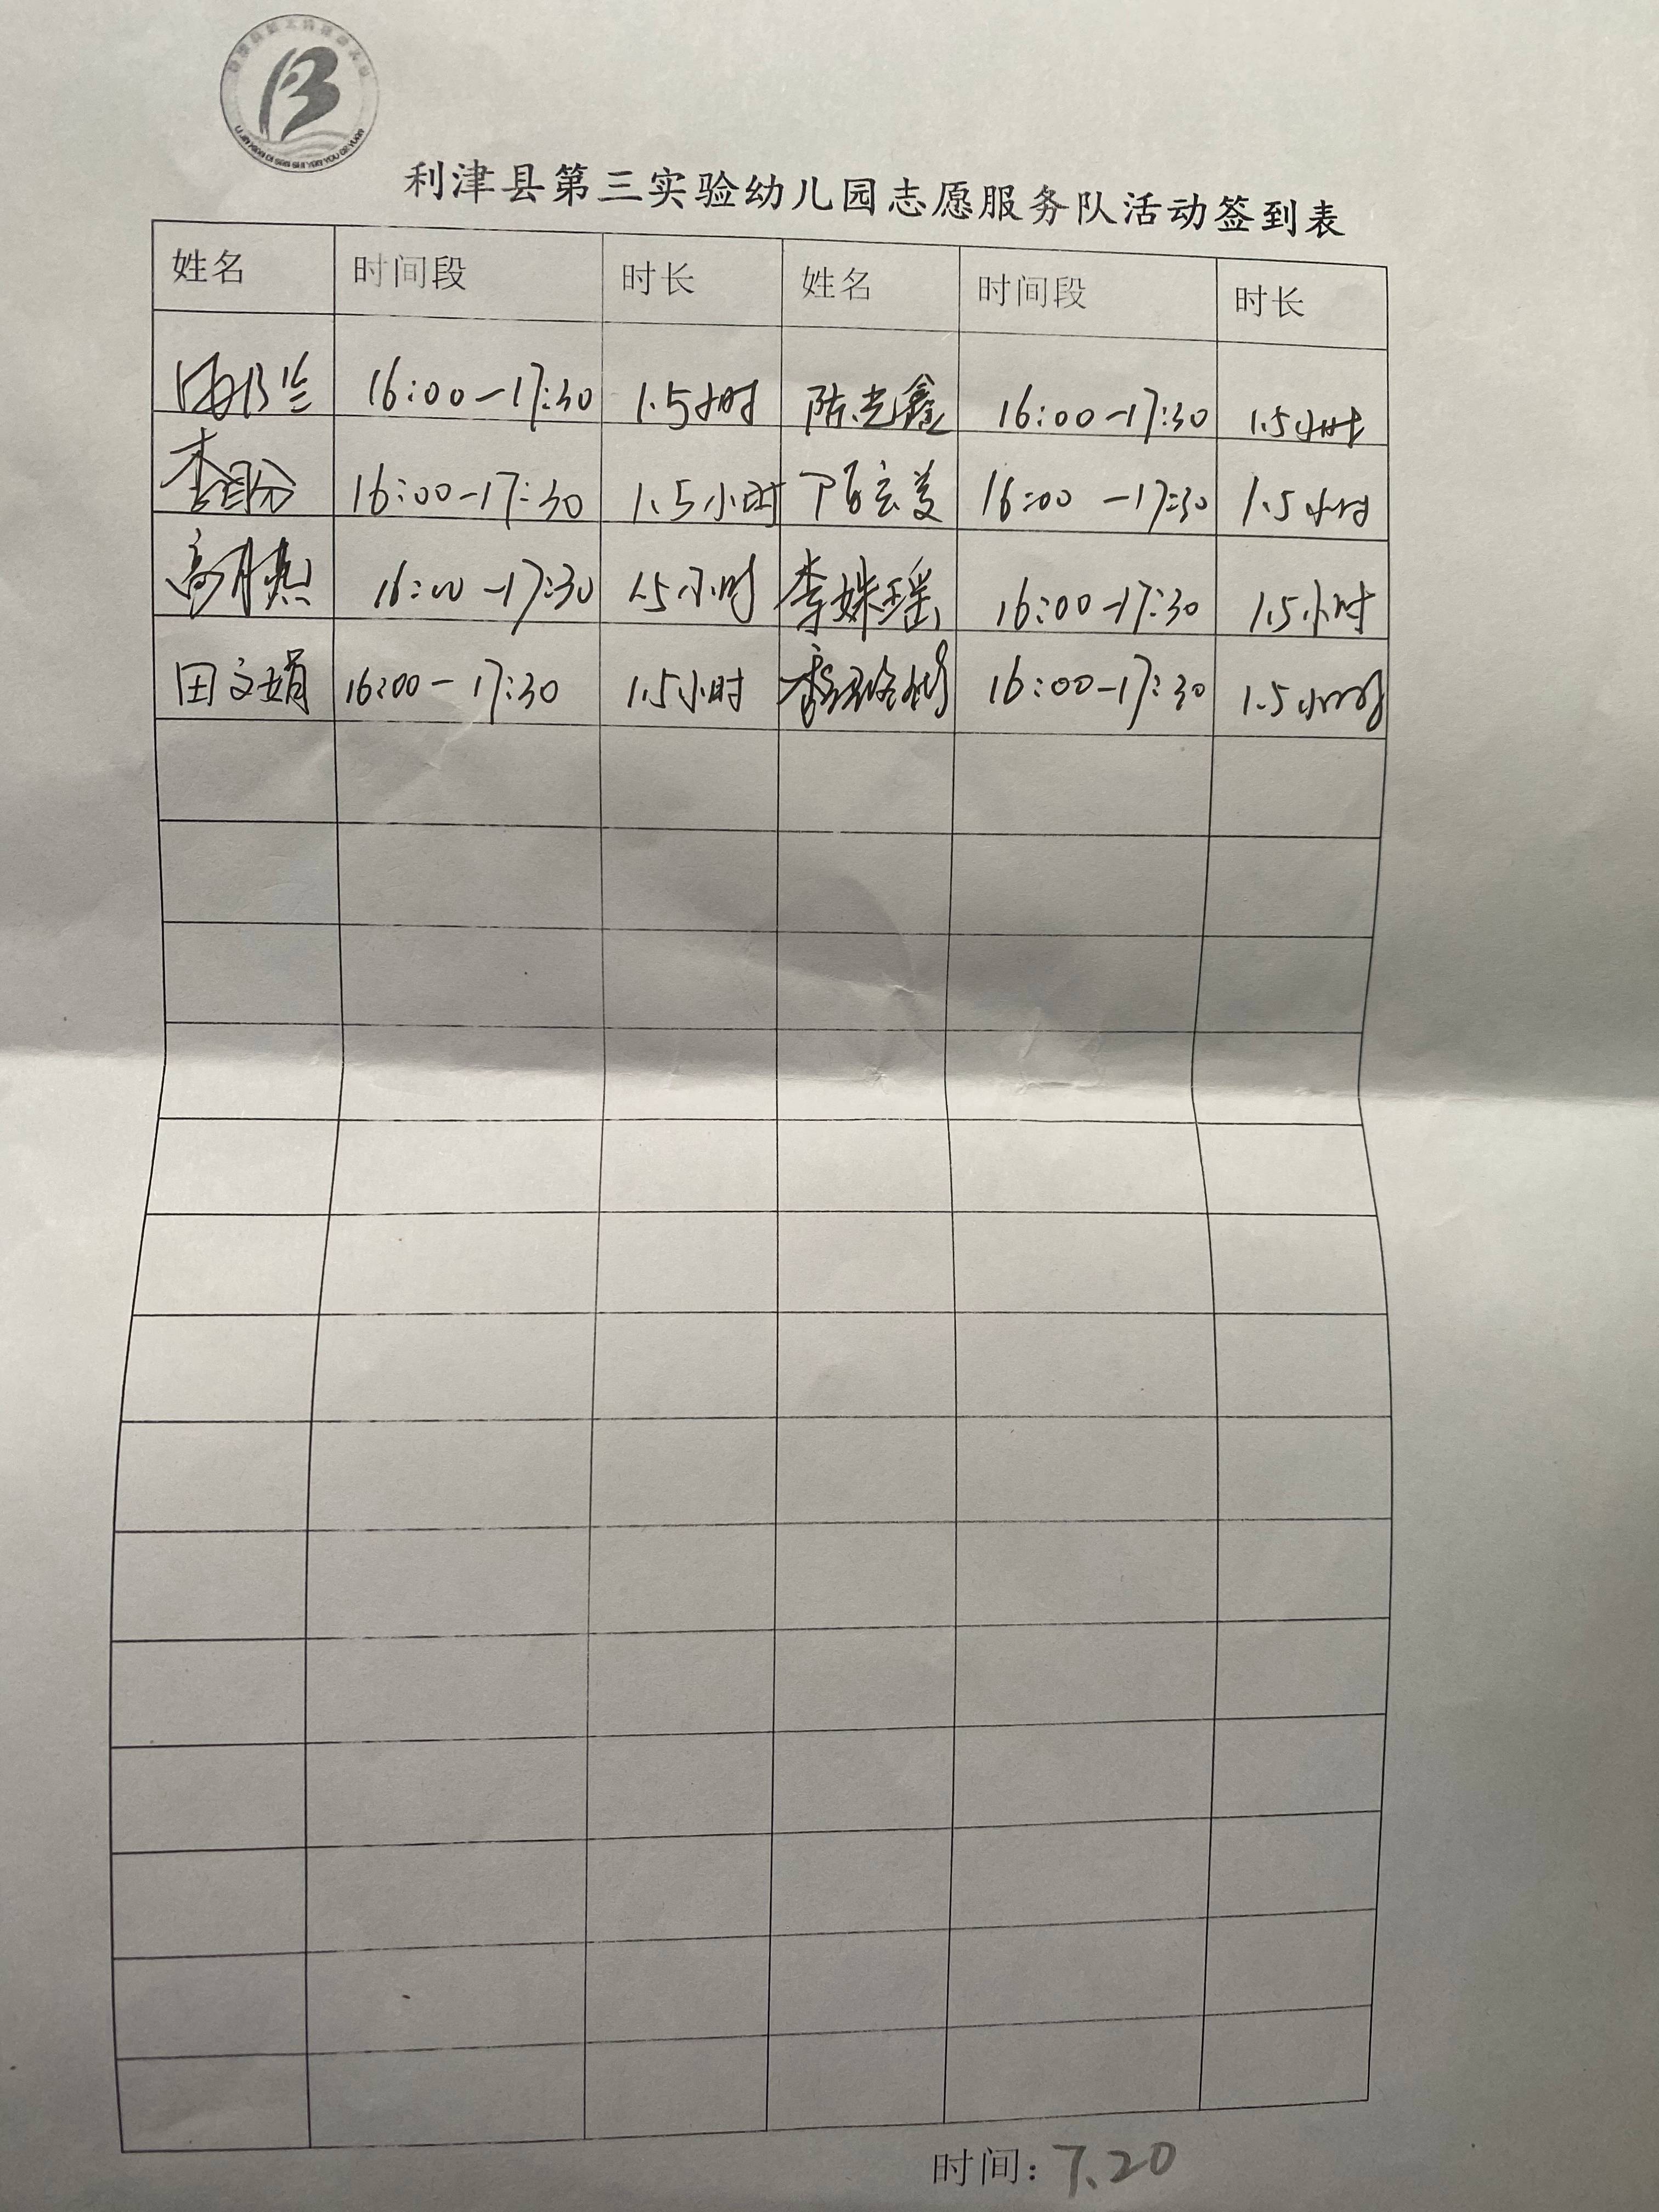 利津县第三实验幼儿园志愿服务队活动签到表
姓名 时间段 时长 姓名 时间段 时长
16:00-17:30 1.5小时 陈光鑫 16:00-17:30 1.5小时
李 16:00-17:30 1.5小时 16:00-17:30 1.5小时
高月燕 16:00-17:30 1.5小时 李姝瑶 16:00-17:30 1.5小时
田文娟 16:00-17:30 1.5小时 16:00-17:30 1.5小时
时间：7.20